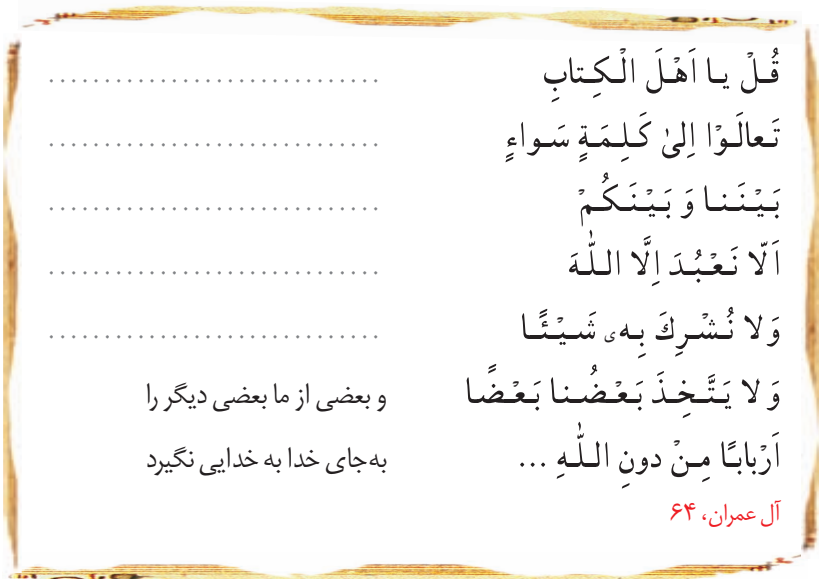 قُلْ يا اَهْلَ الْكِتابِ ..............................
تَعالَوْا اِلىٰ كَلِمَةٍ سَواءٍ ..............................
بَيْنَنا وَ بَيْنَكُمْ ..............................
اَلّا نَعْبُدَ اِلَّا اللّٰهَ ..............................
وَ لا نُشْرِكَ بِهی شَيْئًا ..............................
وَ لا يَتَّخِذَ بَعْضُنا بَعْضًا و بعضی از ما بعضی دیگر را
اَرْبابًا مِنْ دونِ اللّٰهِ ... به‌جای خدا به خدایی نگیرد
آل عمران، ۶۴